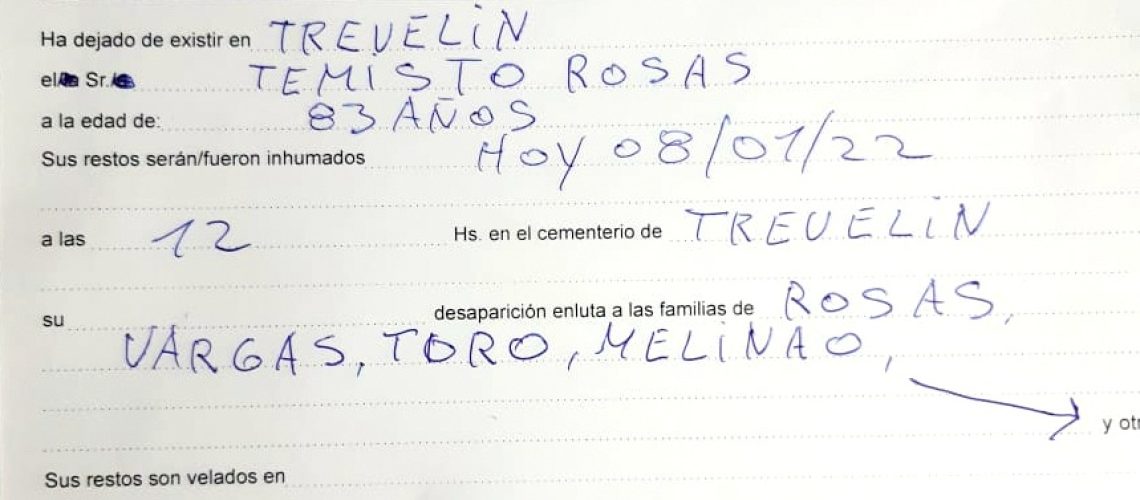 Ha dejado de existir en TREVELIN
el Sr. TEMISTO ROSAS
a la edad de: 83 AÑOS
Sus restos serán/fueron inhumados HOY 08/01/22
a las 12 Hs. en el cementerio de TREVELIN
su desaparición enluta a las familias de ROSAS,
VARGAS, TORO, MELINAO,
y otr
Sus restos son velados en